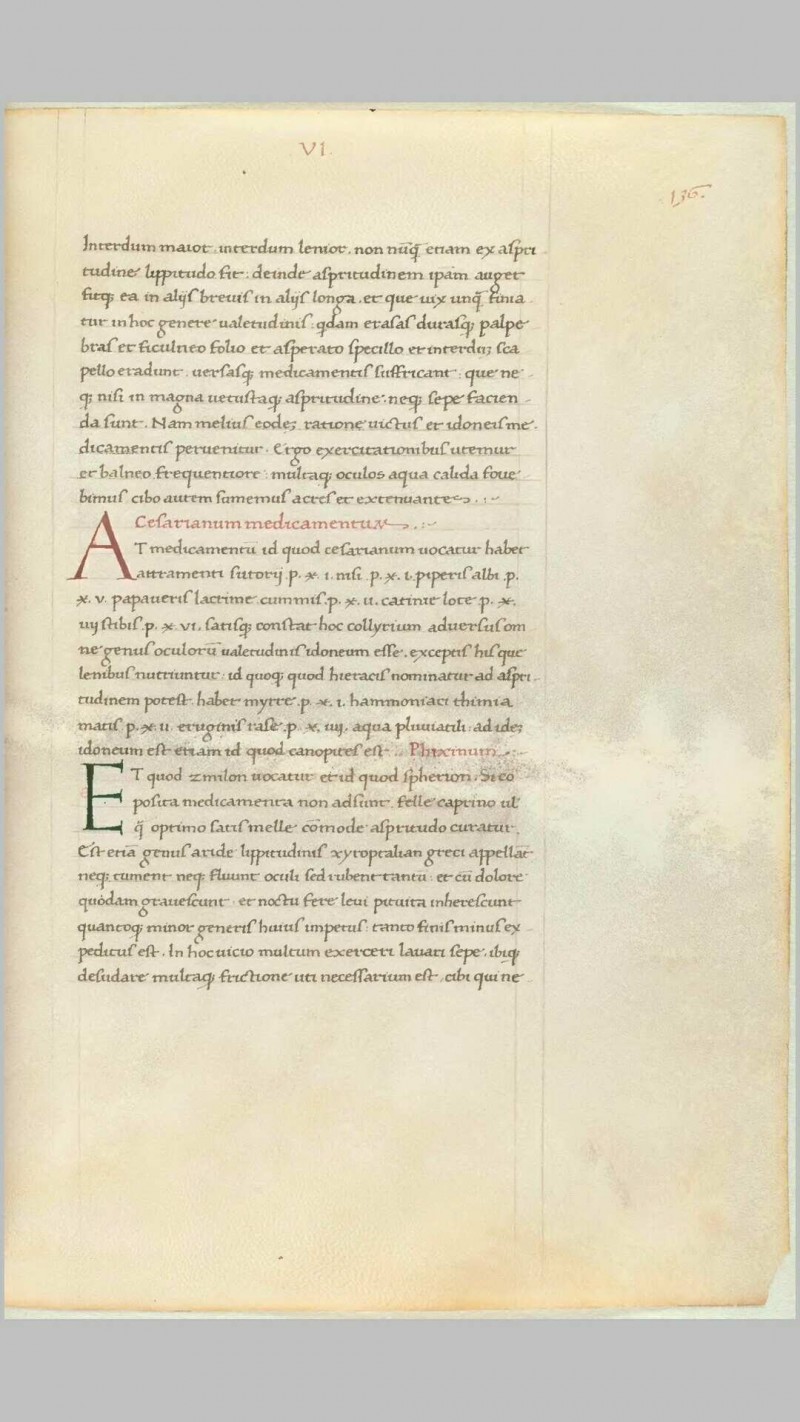 VI.
136.
Interdum maior. interdum lenior. non nūq̄ etiam ex aspri
tudine lippitudo fit: deinde aspritudinem ipam auget
fitq; ea in alijs breuis in alijs longa. et que uix unq̄ finia
tur in hoc genere ualetudinis: qdam erasas durasq; palpe
bras et ficulneo folio et asperato specillo et interdu; sca
pello eradunt. uersasq; medicamentis suffricant: que ne
q; nisi in magna uetustaq; aspritudine. neq; sepe facien
da sunt. Nam melius eode; ratione uictus et idoneis me
dicamentis peruenitur. Ergo exercitationibus utemur
et balneo frequentiore: multaq; oculos aqua calida foue
bimus cibo autem sumemus acres et extenuante
Cesarianum medicamentum
AT medicamentū id quod cesarianum uocatur habet
attramenti sutorij .p. ӿ. i. misi .p. ӿ. i. piperis albi .p.
ӿ. v. papaueris lactime cummis .p. ӿ. ii. catinie lote .p. ӿ.
iiij stibis .p. ӿ. vi. satisq; constat hoc collyrium aduersus om
ne genus oculorū ualetudinis idoneum esse. exceptis his que
lenibus nutriuntur: id quoq; quod hieracis nominatur ad aspri
tudinem potest. habet myrre .p. ӿ. i. hammoniaci thimia
matis .p. ӿ. ii. eruginis rase .p. ӿ. iiij. aqua pluuiatili: ad ide;
idoneum est etiam id quod canopites est.. Phixcinum
ET quod zmilon uocatur et id quod spherion. Si eo
posita medicamenta non adsunt. felle caprino ul'
q̄ optimo satis melle comode aspritudo curatur.
Est etiā genus aride lippitudinis xyroptalian greci appellāt
neq; tument neq; fluunt oculi sed rubent tantū: et cū dolore
quodam grauescunt. et noctu fere leui pituita inherescunt
quantoq; minor generis huius impetus: tanto finis minus ex
peditus est. In hoc uicio multum exerceri lauari sepe. ibiq;
desudare multaq; frictione uti necessarium est. cibi qui ne